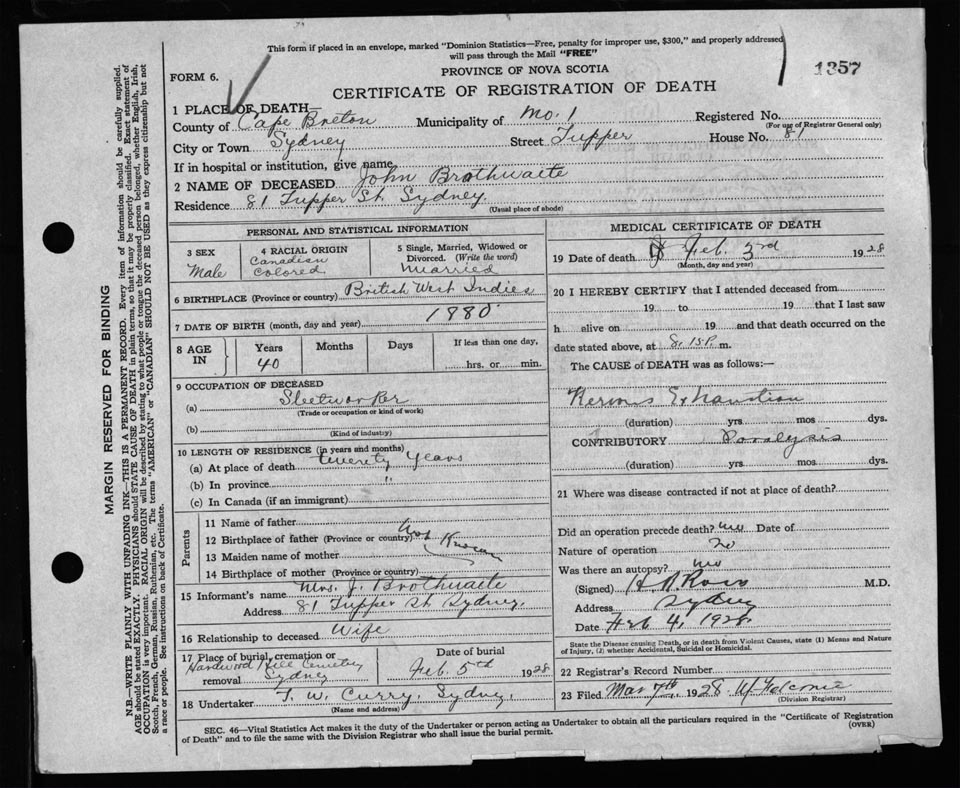 This form if placed in an envelope, marked "Dominion Statistics—Free, penalty for improper use, $300," and properly addressed
will pass through the Mail "FREE"
1357
FORM 6.
PROVINCE OF NOVA SCOTIA
CERTIFICATE OF REGISTRATION OF DEATH
1 PLACE OF DEATH—
County of Cape Breton Municipality of No. 1 Registered No.
(For use of Registrar General only)
City or Town Sydney Street Tupper House No. 81
If in hospital or institution, give name
2 NAME OF DECEASED John Brothwaite
Residence 81 Tupper St. Sydney.
(Usual place of abode)
PERSONAL AND STATISTICAL INFORMATION
3 SEX Male
4 RACIAL ORIGIN Canadian Colored
5 Single, Married, Widowed or Divorced. (Write the word) Married
6 BIRTHPLACE (Province or country) British West Indies
7 DATE OF BIRTH (month, day and year) 1880
8 AGE IN Years Months Days If less than one day,
40 hrs. or min.
9 OCCUPATION OF DECEASED
(a) Steelworker
(Trade or occupation or kind of work)
(b)
(Kind of industry)
10 LENGTH OF RESIDENCE (in years and months)
(a) At place of death twenty years
(b) In province "
(c) In Canada (if an immigrant)
Parents
11 Name of father
12 Birthplace of father (Province or country) Not Known
13 Maiden name of mother
14 Birthplace of mother (Province or country)
15 Informant's name Mrs. J. Brothwaite
Address 81 Tupper St Sydney.
16 Relationship to deceased Wife
17 Place of burial, cremation or removal Hardwood Hill Cemetery Sydney
Date of burial Feb. 5th 1928
18 Undertaker T. W. Curry, Sydney.
(Name and address)
MEDICAL CERTIFICATE OF DEATH
19 Date of death Feb. 3rd 1928
(Month, day and year)
20 I HEREBY CERTIFY that I attended deceased from
19 to 19 that I last saw
h alive on 19 and that death occurred on the
date stated above, at 8.15P. m.
The CAUSE of DEATH was as follows:—
Nervous Exhaustion
(duration) yrs mos dys.
CONTRIBUTORY Paralysis
(duration) yrs mos dys.
21 Where was disease contracted if not at place of death?
Did an operation precede death? no Date of
Nature of operation no
Was there an autopsy? no
(Signed) M.D.
Address Sydney
Date Feb 4, 1928
State the Disease causing Death, or in death from Violent Causes, state (1) Means and Nature
of Injury, (2) whether Accidental, Suicidal or Homicidal.
22 Registrar's Record Number
23 Filed Mar 7th, 1928
(Division Registrar)
SEC. 46—Vital Statistics Act makes it the duty of the Undertaker or person acting as Undertaker to obtain all the particulars required in the "Certificate of Registration
of Death" and to file the same with the Division Registrar who shall issue the burial permit.
(OVER)
MARGIN RESERVED FOR BINDING
N.B.—WRITE PLAINLY WITH UNFADING INK—THIS IS A PERMANENT RECORD. Every item of information should be carefully supplied.
AGE should be stated EXACTLY. PHYSICIANS should STATE CAUSE OF DEATH in plain terms, so that it may be properly classified. Exact statement of
OCCUPATION is very important. RACIAL ORIGIN will be described by stating to what people or tongue the deceased person belonged, whether English, Irish,
Scotch, French, German, Russian, Ruthenian, etc. The terms "AMERICAN" or "CANADIAN" SHOULD NOT BE USED as they express citizenship but not
a race or people. See instructions on back of Certificate.